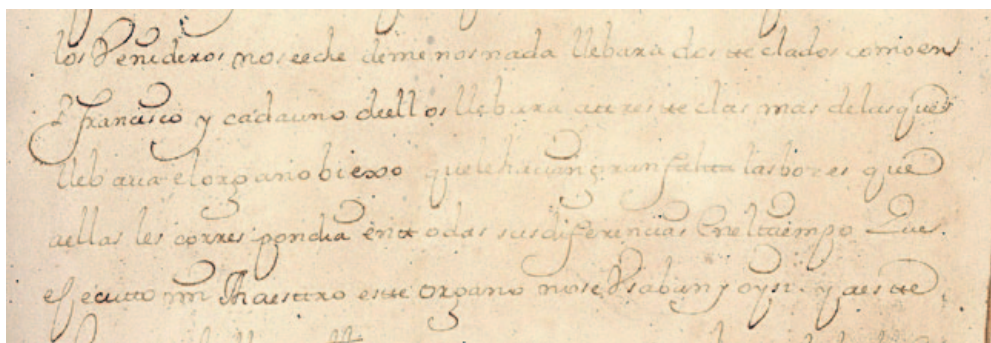 los Venideros no se eche de menos nada llebara dos tteclados como en
S Francisco y cada uno de ellos llebara a ttres tteclas mas de las que
llebaria el organo biexo que le hacian gran faltta las bozes que
a ellas les correspondia en ttodas sus diferencias En el ttiempo Que
ejecutto mi Maesttro estte Organo no se Vsaban y oy si y a estte